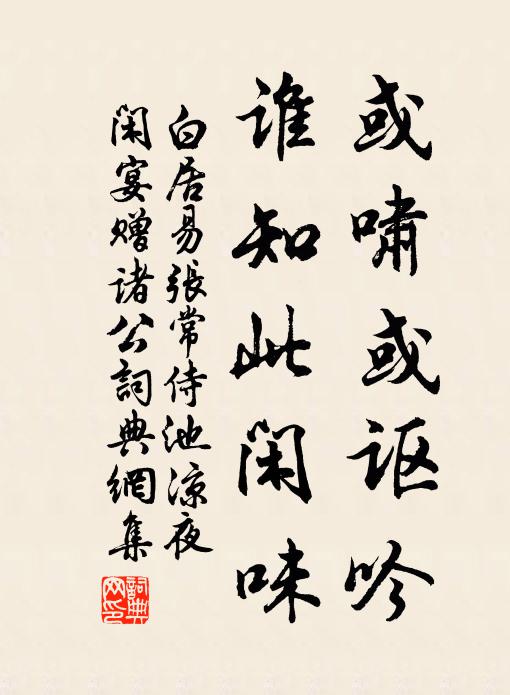 或啸或讴吟
谁知此闲味
白居易張常侍池凉夜
闲宴赠诸公詞典網集
詞典
网印